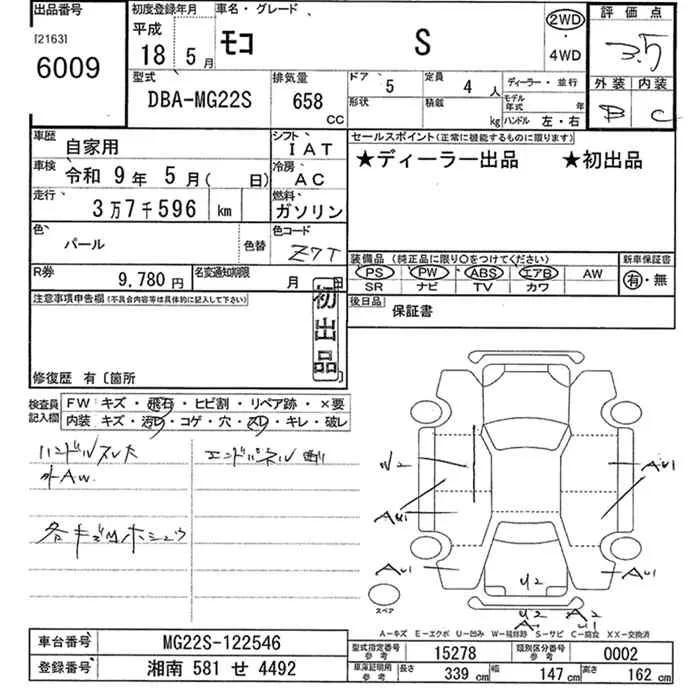 出品番号
[2163]
6009
初度登録年月
平成
18年 5月
車名・グレード
モコ S
2WD
・
4WD
評価点
3.5
外装 内装
B C
型式
DBA-MG22S
排気量
658
CC
ドア
5
形状
定員
4 人
積載
kg
ディーラー・並行
モデル年式 年
ハンドル 左・右
車歴 自家用
車検 令和 9年 5月( 日)
走行 3万7千596 km
シフト IAT
冷房 AC
燃料 ガソリン
色 パール
色替
色コード Z7T
R券 9,780 円
名変通知期限 月 日
セールスポイント(正常に機能するものに限ります)
★ディーラー出品 ★初出品
装備品(純正品に限り〇をつけてください)
PS PW ABS エアB AW
SR ナビ TV カワ
新車保証書
有・無
後日品
保証書
注意事項申告欄(不具合内容等は具体的に記入して下さい)
初出品
修復歴 有〔箇所
検査員記入欄
FW キズ・飛石・ヒビ割・リペア跡・×要
内装 キズ・汚レ・コゲ・穴・スレ・キレ・破レ
ハンドルスレ大
外AW
エンドパネル凹
W2
AU1
AU1
AU1
AU1
U2
U2
A2
U1
スペア
A−キズ E−エクボ U−凹み W−補修跡 S−サビ C−腐食 XX−交換済
車台番号 MG22S-122546
登録番号 湘南 581 せ 4492
型式指定番号 参考 15278
類別区分番号 参考 0002
車庫証明用 参考 長さ 339 cm 幅 147 cm 高さ 162 cm